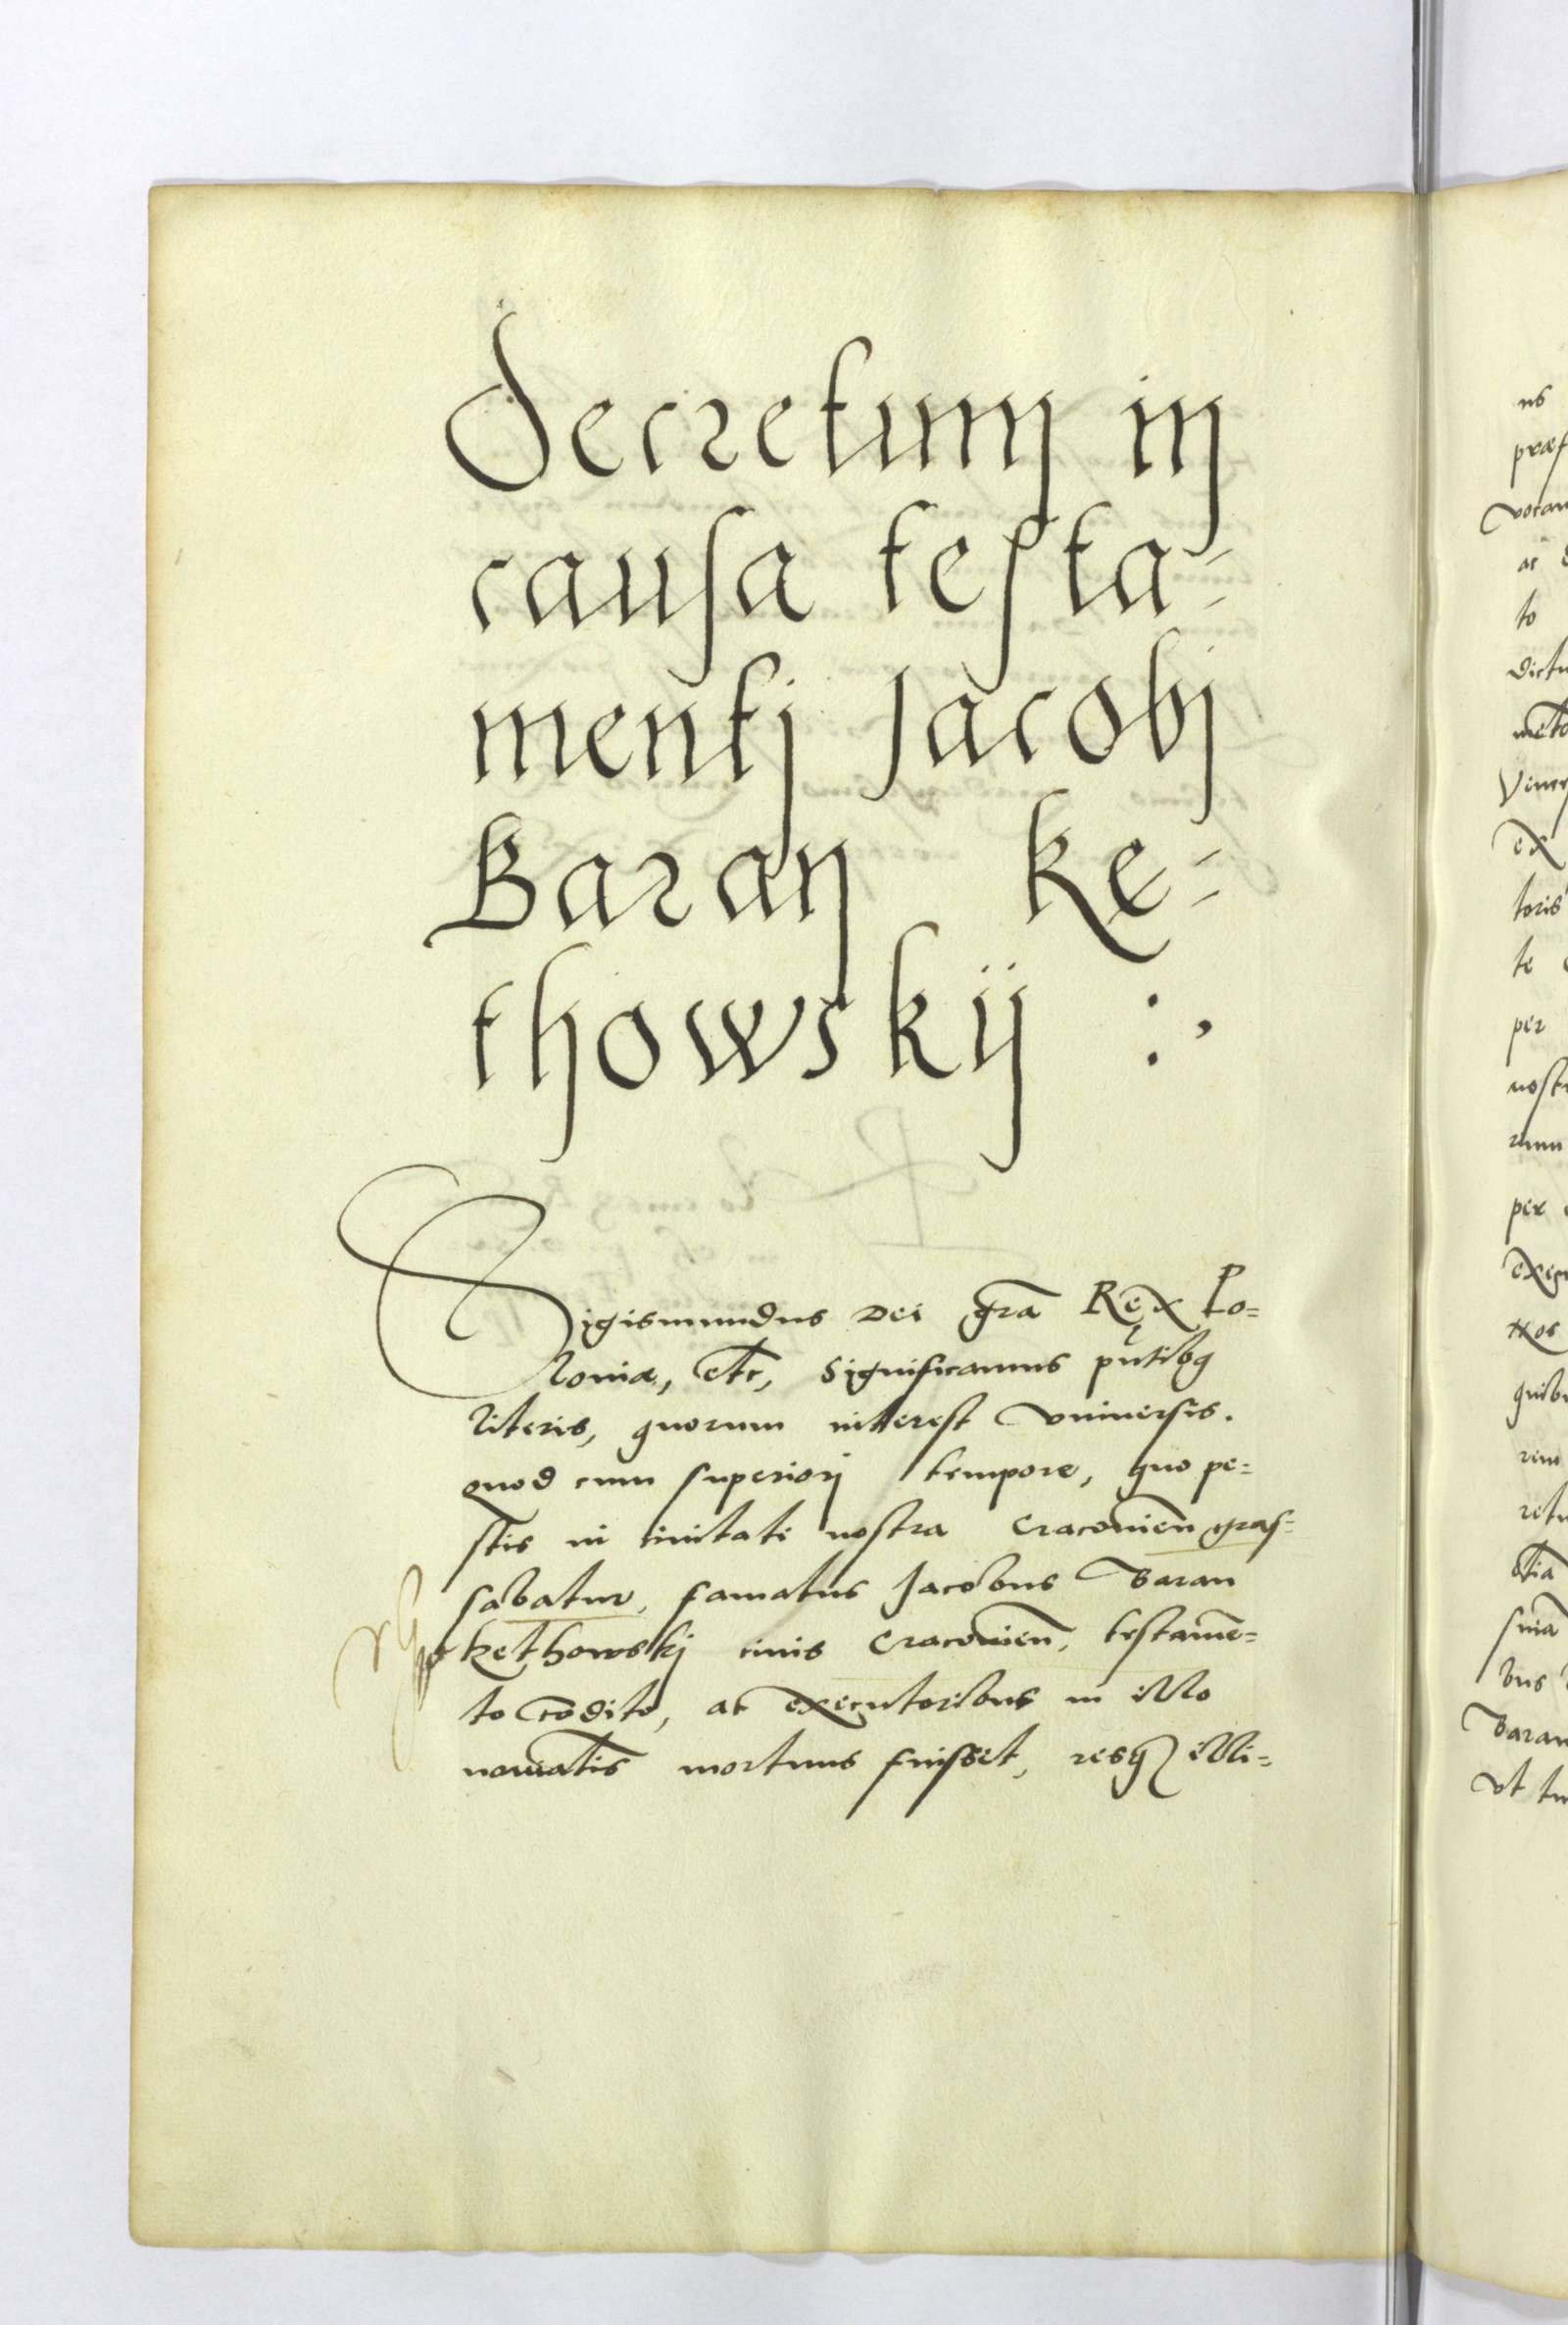 Decretum in
causa testa=
mentj Jacobj
Baran Ke=
thowskij :,
Sigismundus Dei gra͞ Rex Po=
loniæ, etc, Significamus pn̄tibꝫ
literis, quorum interest vniuersis.
quod cum superiorj tempore, quo pe=
stis in ciuitate nostra Cracouien̄ gras=
sabatur, famatus Jacobus Baran
Kethowskj ciuis Cracouien̄, testamē=
to cōdito, ac executoribus in illo
nominatis mortuus fuisset, resqꝫ illi=
ns
præs
vocan
ac
to
dictu
ex
toris
te
per
nost
rum
per
exeq
nos
quibu
rem
retu
suā
bus
Baran
vt tu